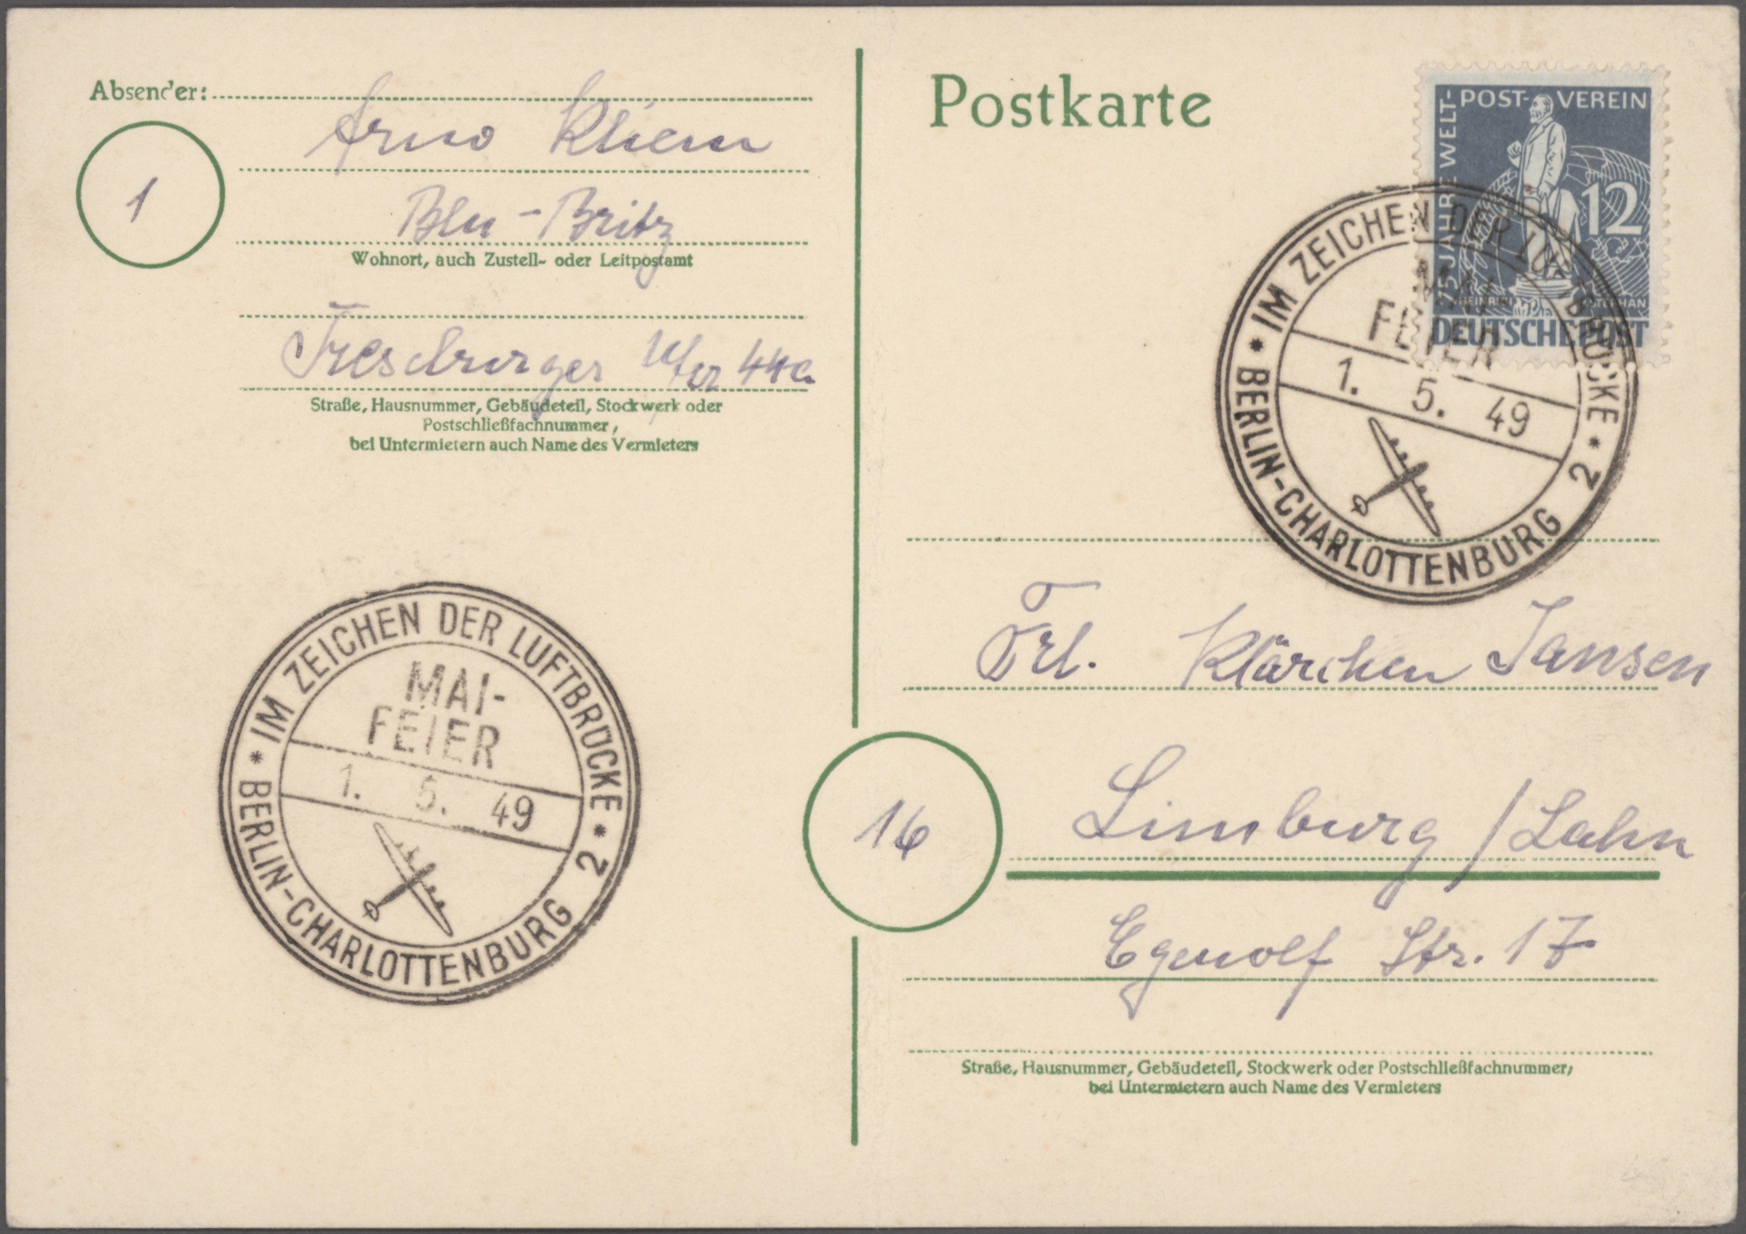 Absender:
Arno Kliem
1
Bln-Britz
Wohnort, auch Zustell- oder Leitpostamt
Treseburger Ufer 44a
Straße, Hausnummer, Gebäudeteil, Stockwerk oder
Postschließfachnummer,
bei Untermietern auch Name des Vermieters
IM ZEICHEN DER LUFTBRÜCKE
MAI-
FEIER
1. 5. 49
* BERLIN-CHARLOTTENBURG 2 *
Postkarte
75 JAHRE WELT-POST-VEREIN
12
HEINRICH STEPHAN
DEUTSCHE POST
IM ZEICHEN DER LUFTBRÜCKE
MAI-
FEIER
1. 5. 49
* BERLIN-CHARLOTTENBURG 2 *
Frl. Klärchen Jansen
16
Limburg/Lahn
Egenolf Str. 17
Straße, Hausnummer, Gebäudeteil, Stockwerk oder Postschließfachnummer,
bei Untermietern auch Name des Vermieters